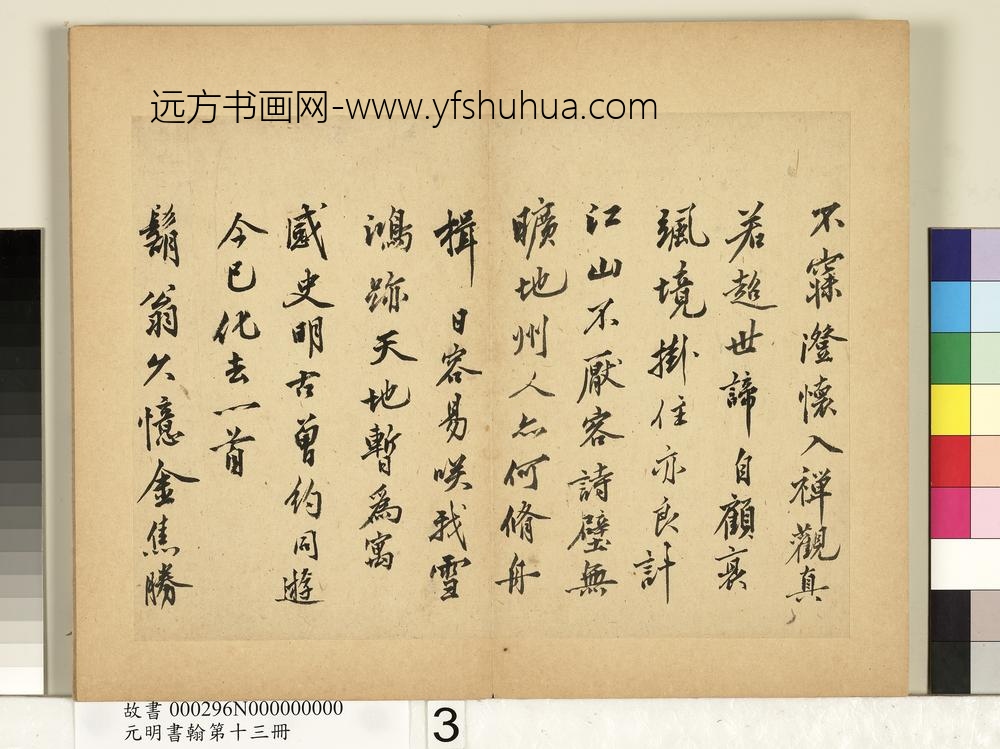 远方书画网-www.yfshuhua.com
不寐澄懷入禪觀真
若超世諦自顧衰
颯境掛住亦良計
江山不厭客詩壁無
曠地州人亦何脩舟
楫日容易咲我雪
鴻跡天地暫為寓
感史明古曾約同遊
今已化去一首
鬍翁久憶金焦勝
故書 000296N000000000
元明書翰第十三冊
3